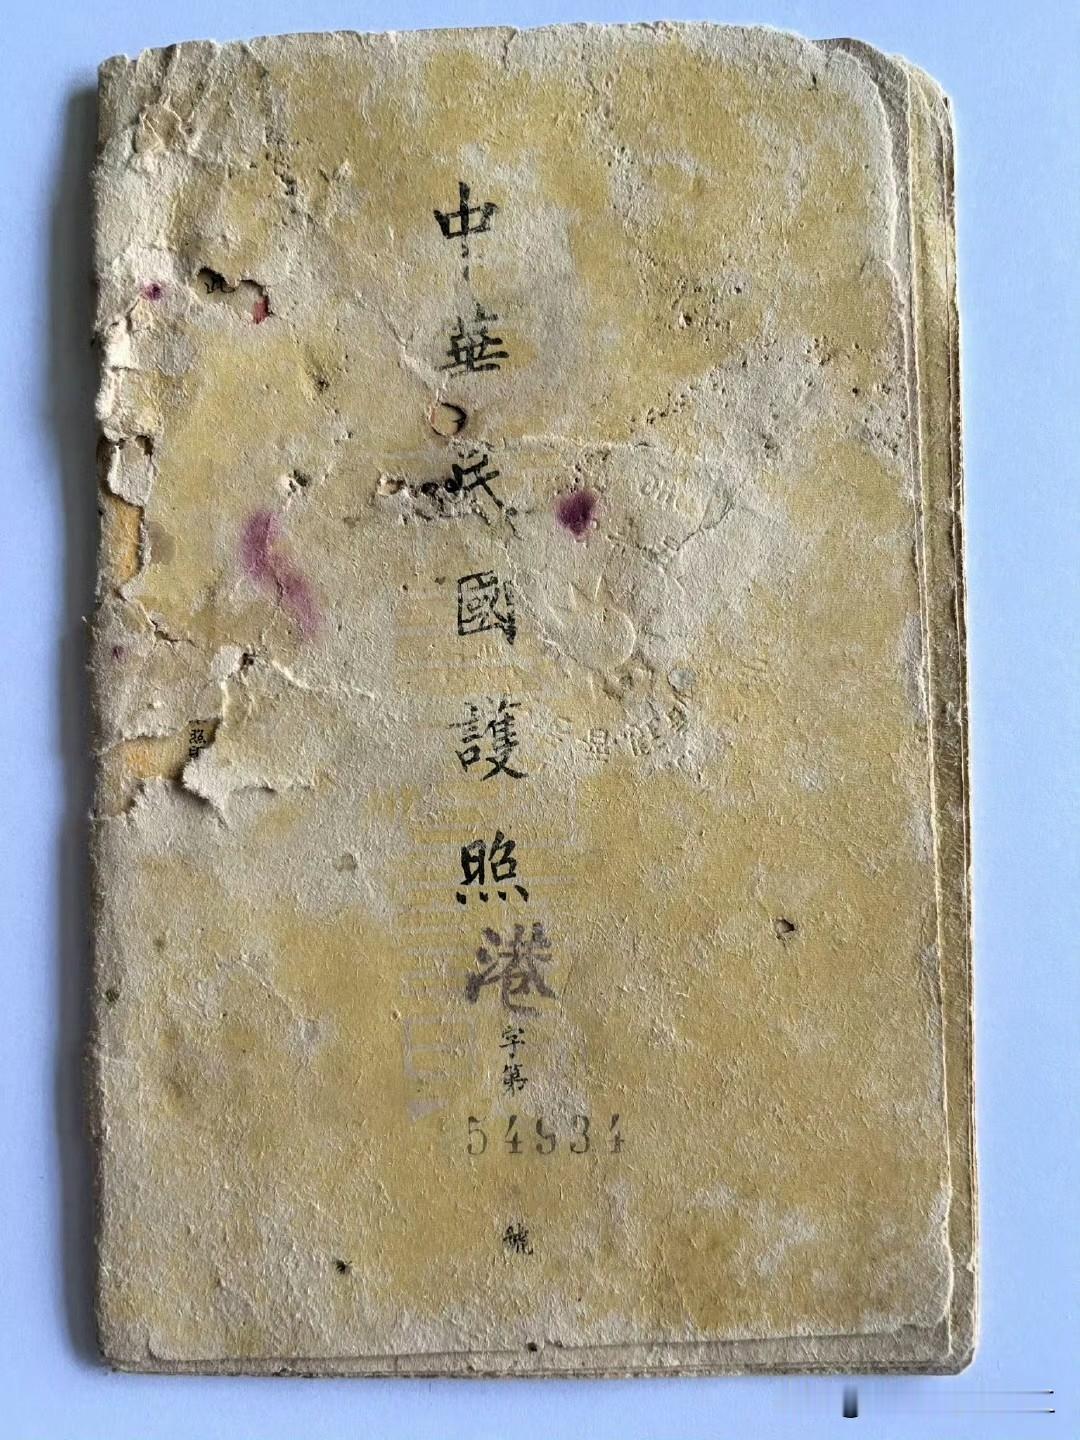 中華民國護照
港
字第
54934
號
照